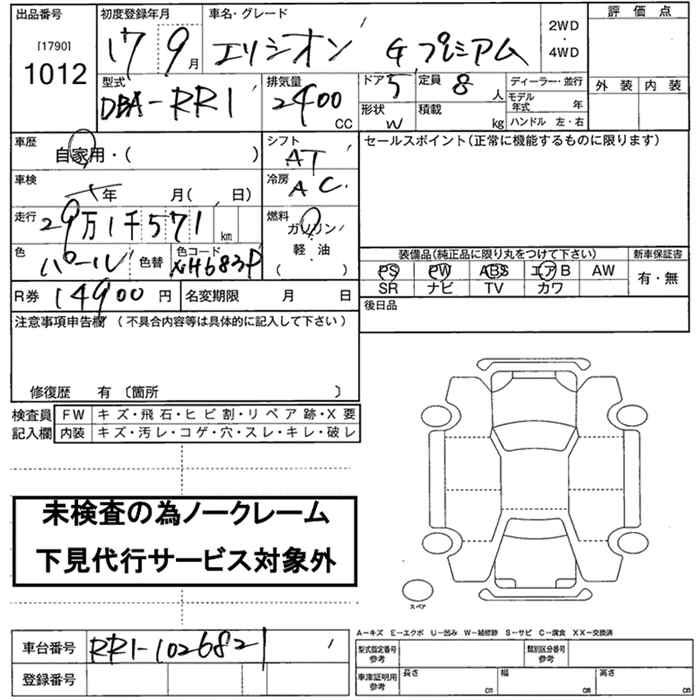 出品番号 初度登録年月 車名・グレード 2WD・4WD 評価点
[1790] 1012 17 9月 エリシオン Gプレミアム
外装 内装
型式 DBA-RR1 排気量 2400 CC ドア 5 定員 8人 ディーラー・並行
形状 W 積載 kg モデル年式 年
ハンドル 左・右
車歴 自家用・( ) シフト AT セールスポイント(正常に機能するものに限ります)
車検 年 月( 日) 冷房 AC
走行 29万1千571 km 燃料 ガソリン 軽・油 ( )
色 パール 色替 色コード NH683P
装備品(純正品に限り丸をつけて下さい) 新車保証書
PS PW ABS エアB AW 有・無
SR ナビ TV カワ
R券 14900円 名変期限 月 日 後日品
注意事項申告欄 (不具合内容等は具体的に記入して下さい)
修復歴 有 〔箇所 〕
検査員 FW キズ・飛石・ヒビ割・リペア跡・X要
記入欄 内装 キズ・汚レ・コゲ・穴・スレ・キレ・破レ
未検査の為ノークレーム
下見代行サービス対象外
スペア
A-キズ E-エクボ U-凹み W-補修跡 S-サビ C-腐食 XX-交換済
車台番号 RR1-1026821 型式指定番号 参考 類別区分番号 参考
登録番号 車庫証明用 参考 長さ cm 幅 cm 高さ cm